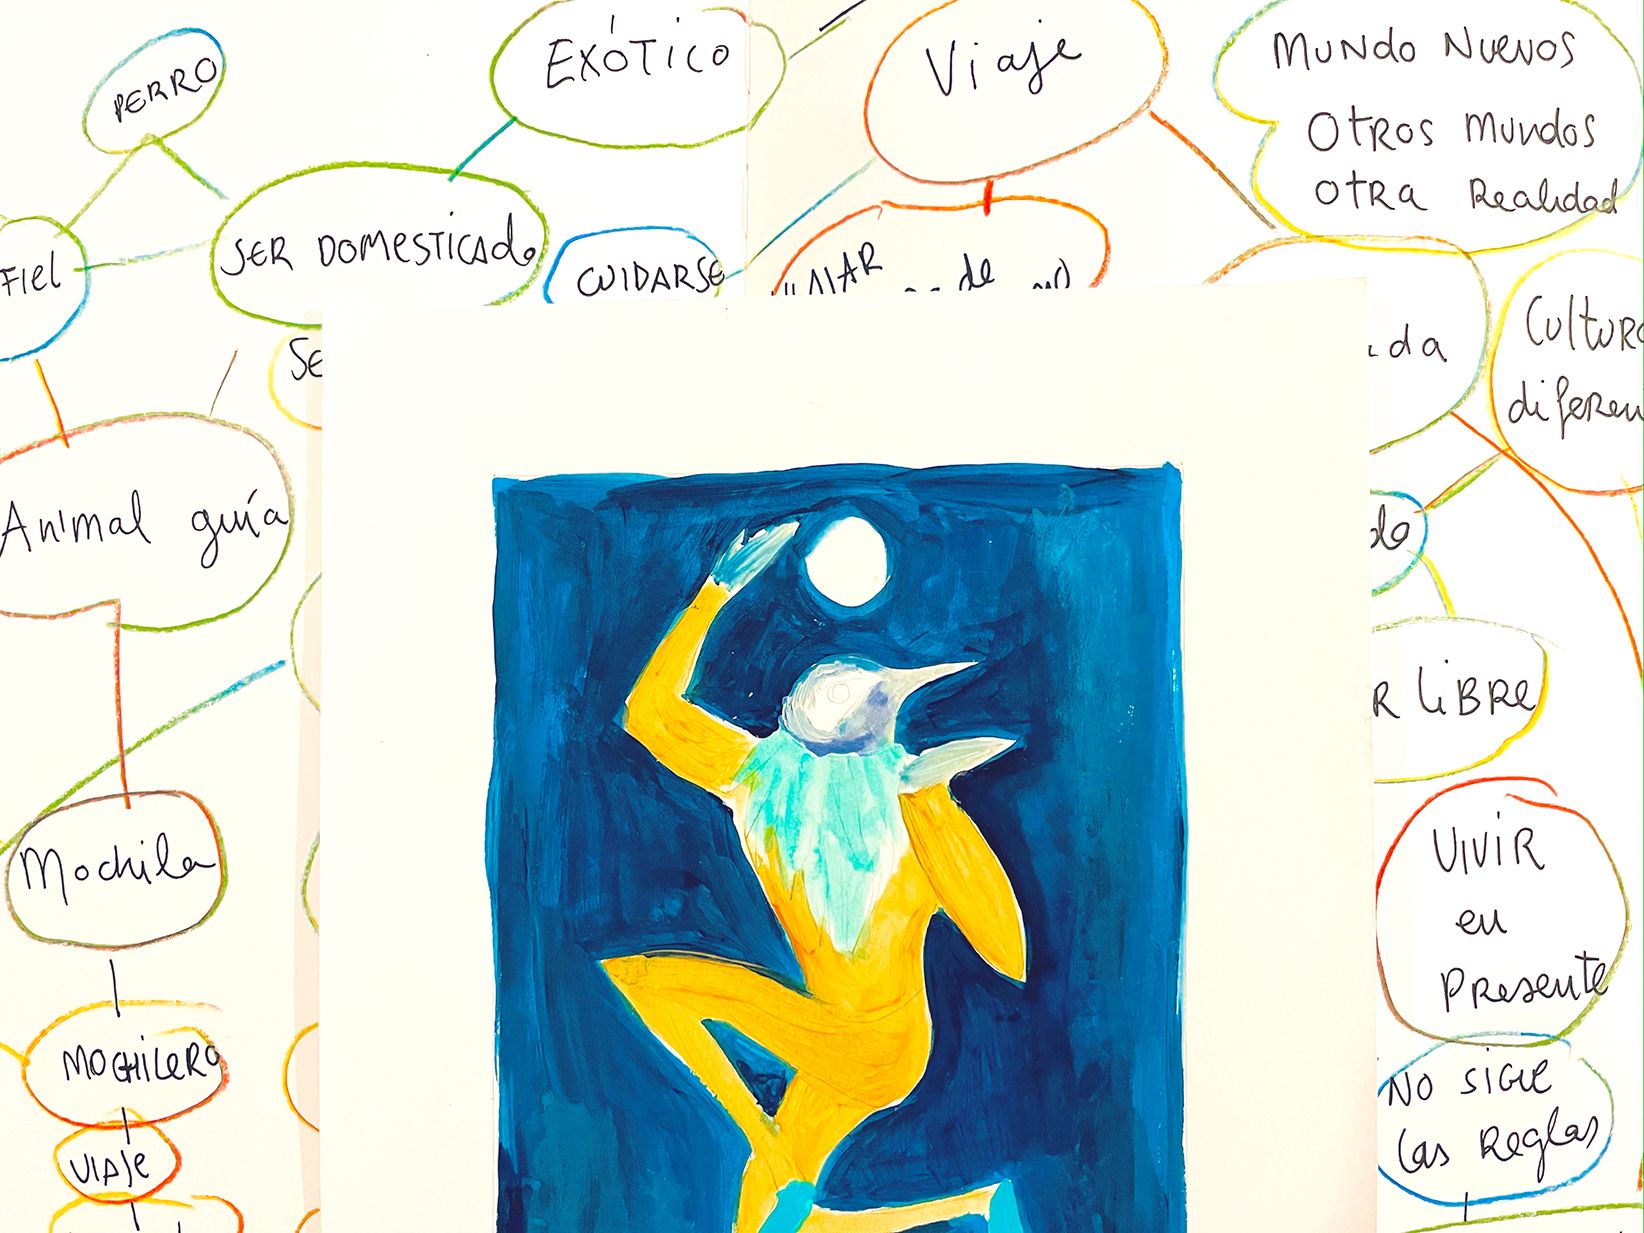 PERRO
EXÓTICO
SER DOMESTICADO
FIEL
CUIDARSE
SE
Animal guía
Mochila
MOCHILERO
VIAJE
Viaje
de
MUNDO NUEVOS
OTROS MUNDOS
OTRA Realidad
Cultura
diferen
R LIBRE
VIVIR
en
PResente
NO SIGUE
Las Reglas